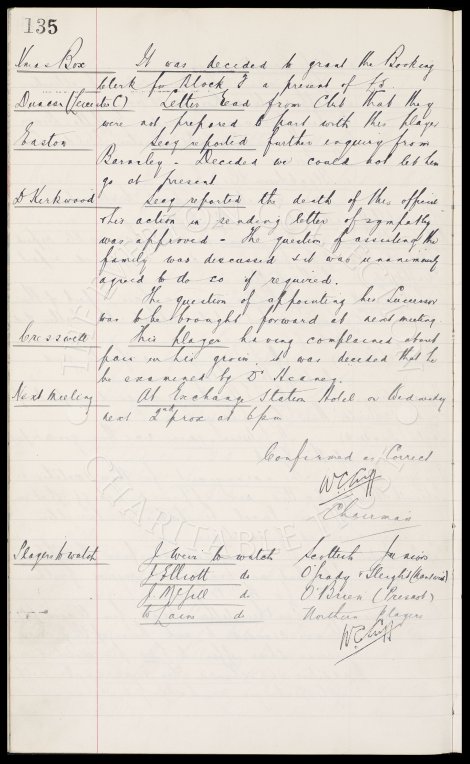 135
Xmas Box It was decided to grant the Booking
Clerk for Block a present of £5.
Duncan (Leicester C) Letter read from Club that they
were not prepared to part with this player
Easton Secy reported further enquiry from
Barnsley - Decided we could not let him
go at present
D Kirkwood Secy reported the death of this official
& his action in sending letter of sympathy
was approved - The question of assisting the
family was discussed & it was unanimously
agreed to do so if required.
The question of appointing his Successor
was to be brought forward at next meeting
Cresswell This player having complained about
pain in his groin it was decided that he
be examined by Dr Heaney.
Next Meeting At Exchange Station Hotel on Wednesday
next 2nd prox at 6pm
Confirmed as Correct
W.C. Cuff
Chairman
Players to watch J Weir to watch Scottish Juniors
T Elliott do O'Grady & Sleight
J McGill do O'Brien
do Northern players
W.C. Cuff
CHARITABLE